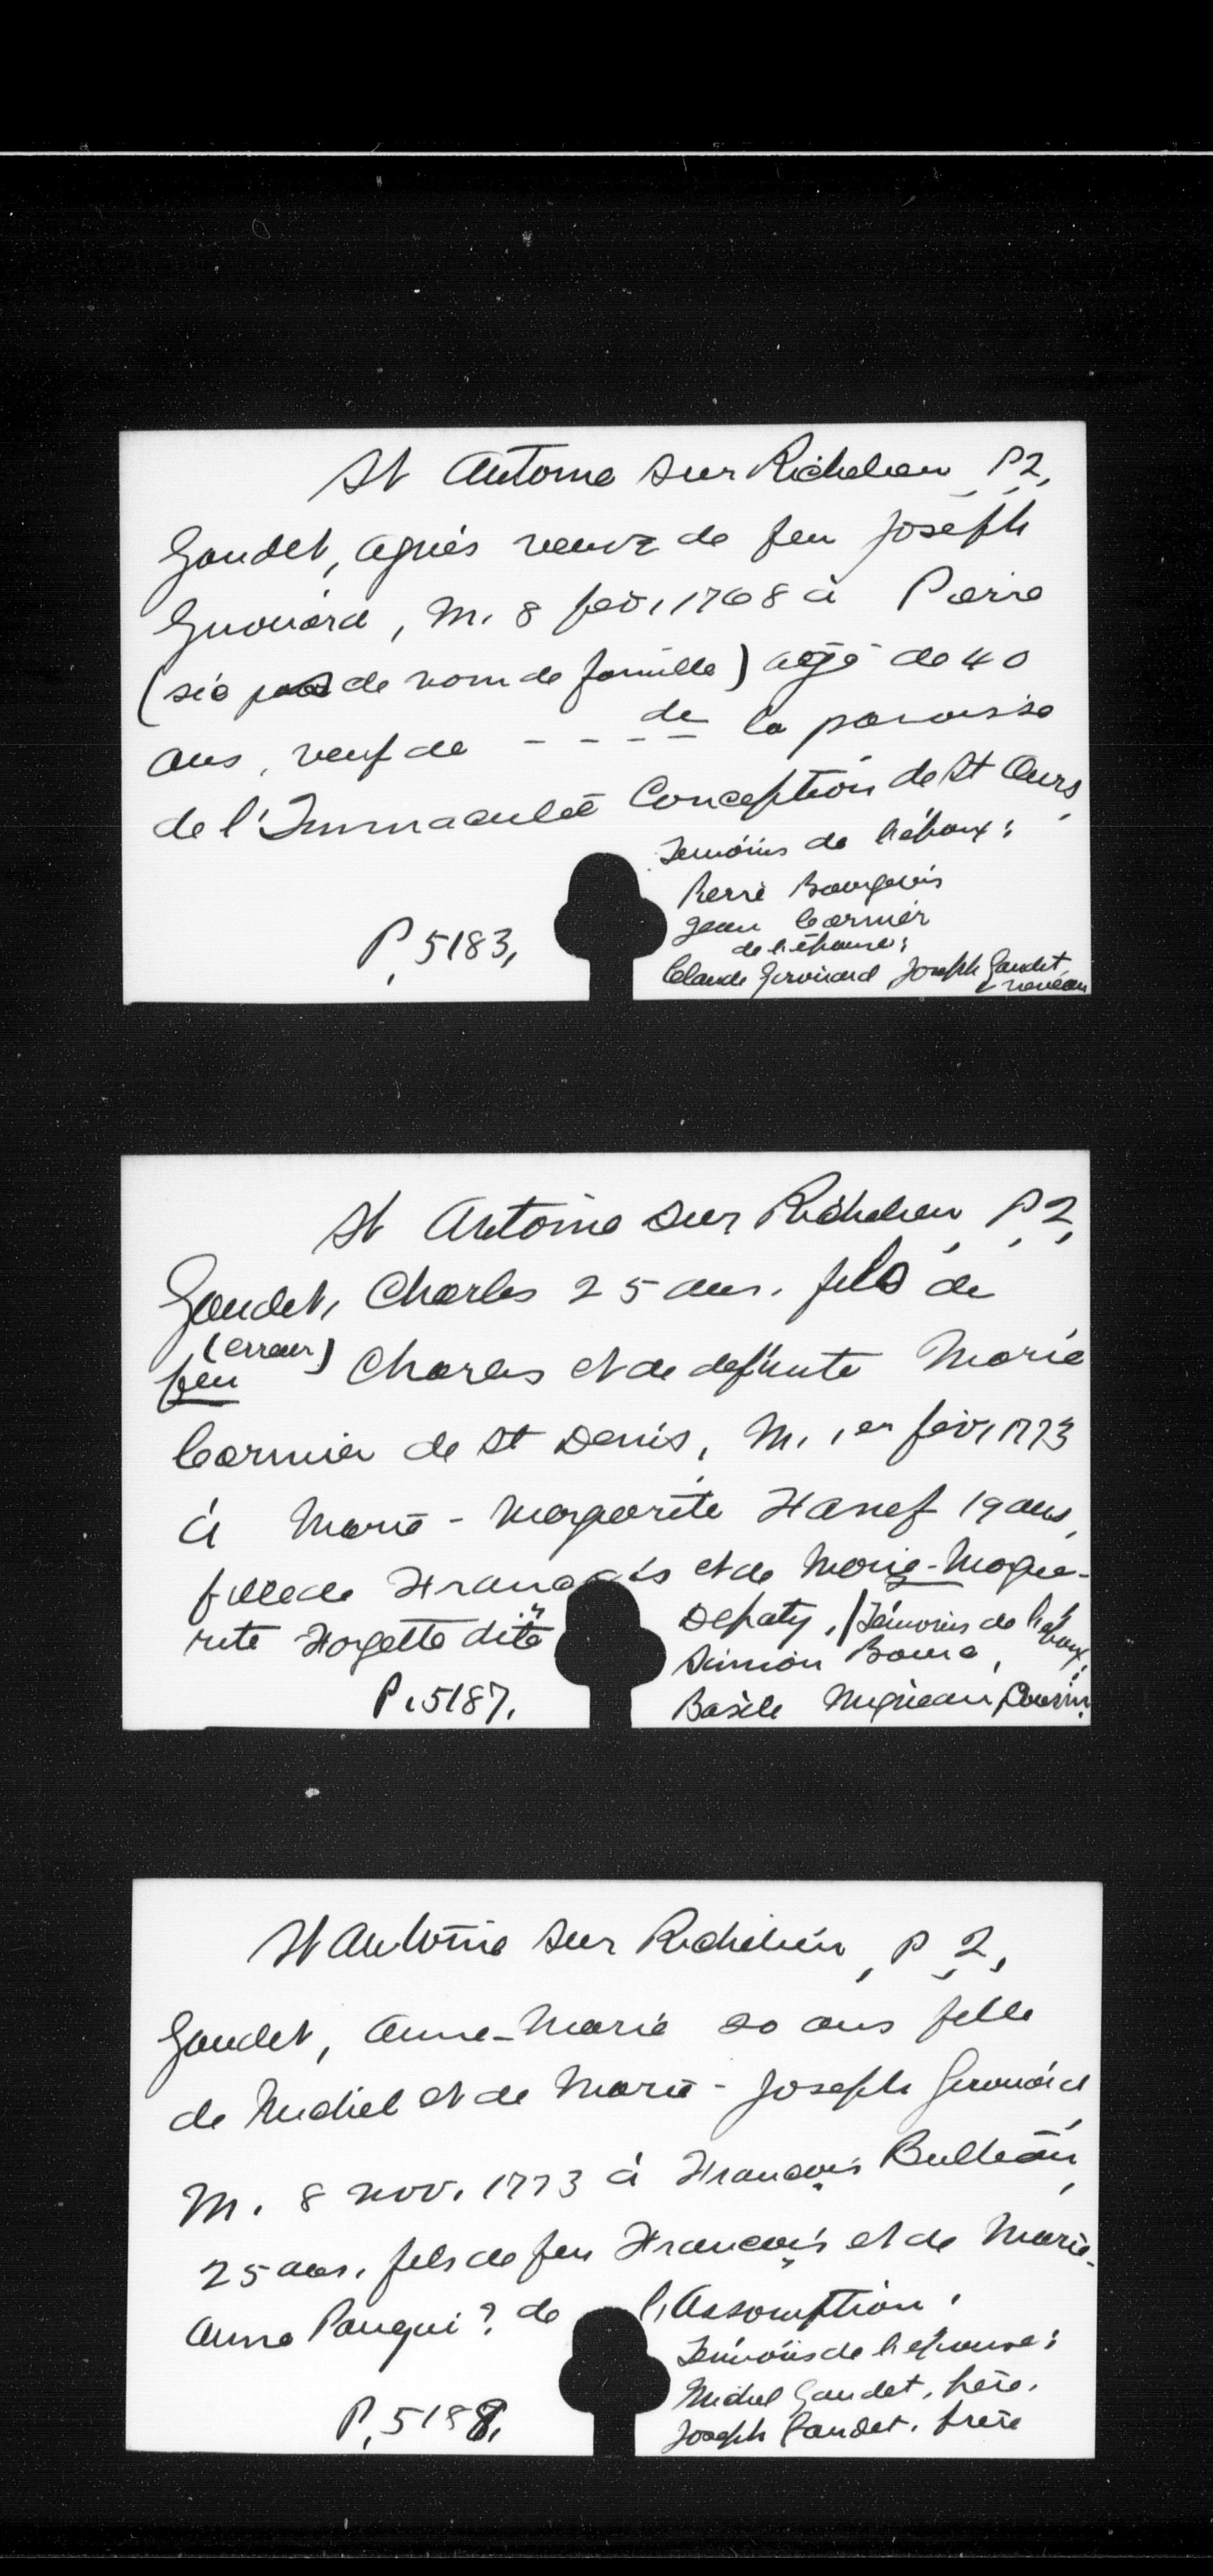 St Antoine sur Richelieu, P. 2,
Gaudet, Agnès veuve de feu Joseph
Girouard, M. 8 fév. 1768 à Pierre
(sic pas de nom de famille) âgé de 40
ans, veuf de - - - - de la paroisse
de l'Immaculée Conception de St Ours,
Témoins de l'époux:
Pierre Bourgeois
Jean Cormier
de l'épouse:
Claude Girouard Joseph Gaudet,
neveau
P. 5183,
St Antoine sur Richelieu, P. 2,
Gaudet, Charles 25 ans. fils de
(erreur)
feu Charles et de defunte Marie
Cormier de St Denis, M. 1er fév. 1773
à Marie-Margerite Hanef 19 ans,
fille de François et de Marie-Margue-
rite Forgette dite
Depaty. / Témoins de l'époux:
Simon Bourg,
Basile Migneau, Cousin.
P. 5187.
St Antoine sur Richelieu, P. 2,
Gaudet, Anne-Marie 20 ans fille
de Michel et de Marie-Joseph Girouard,
M. 8 nov. 1773 à François
25 ans. fils de feu François et de Marie-
Anne Pouqui? de l'Assomption.
Témoins de l'épouse:
Michel Gaudet, père.
Joseph Gaudet. frère
P. 5188.